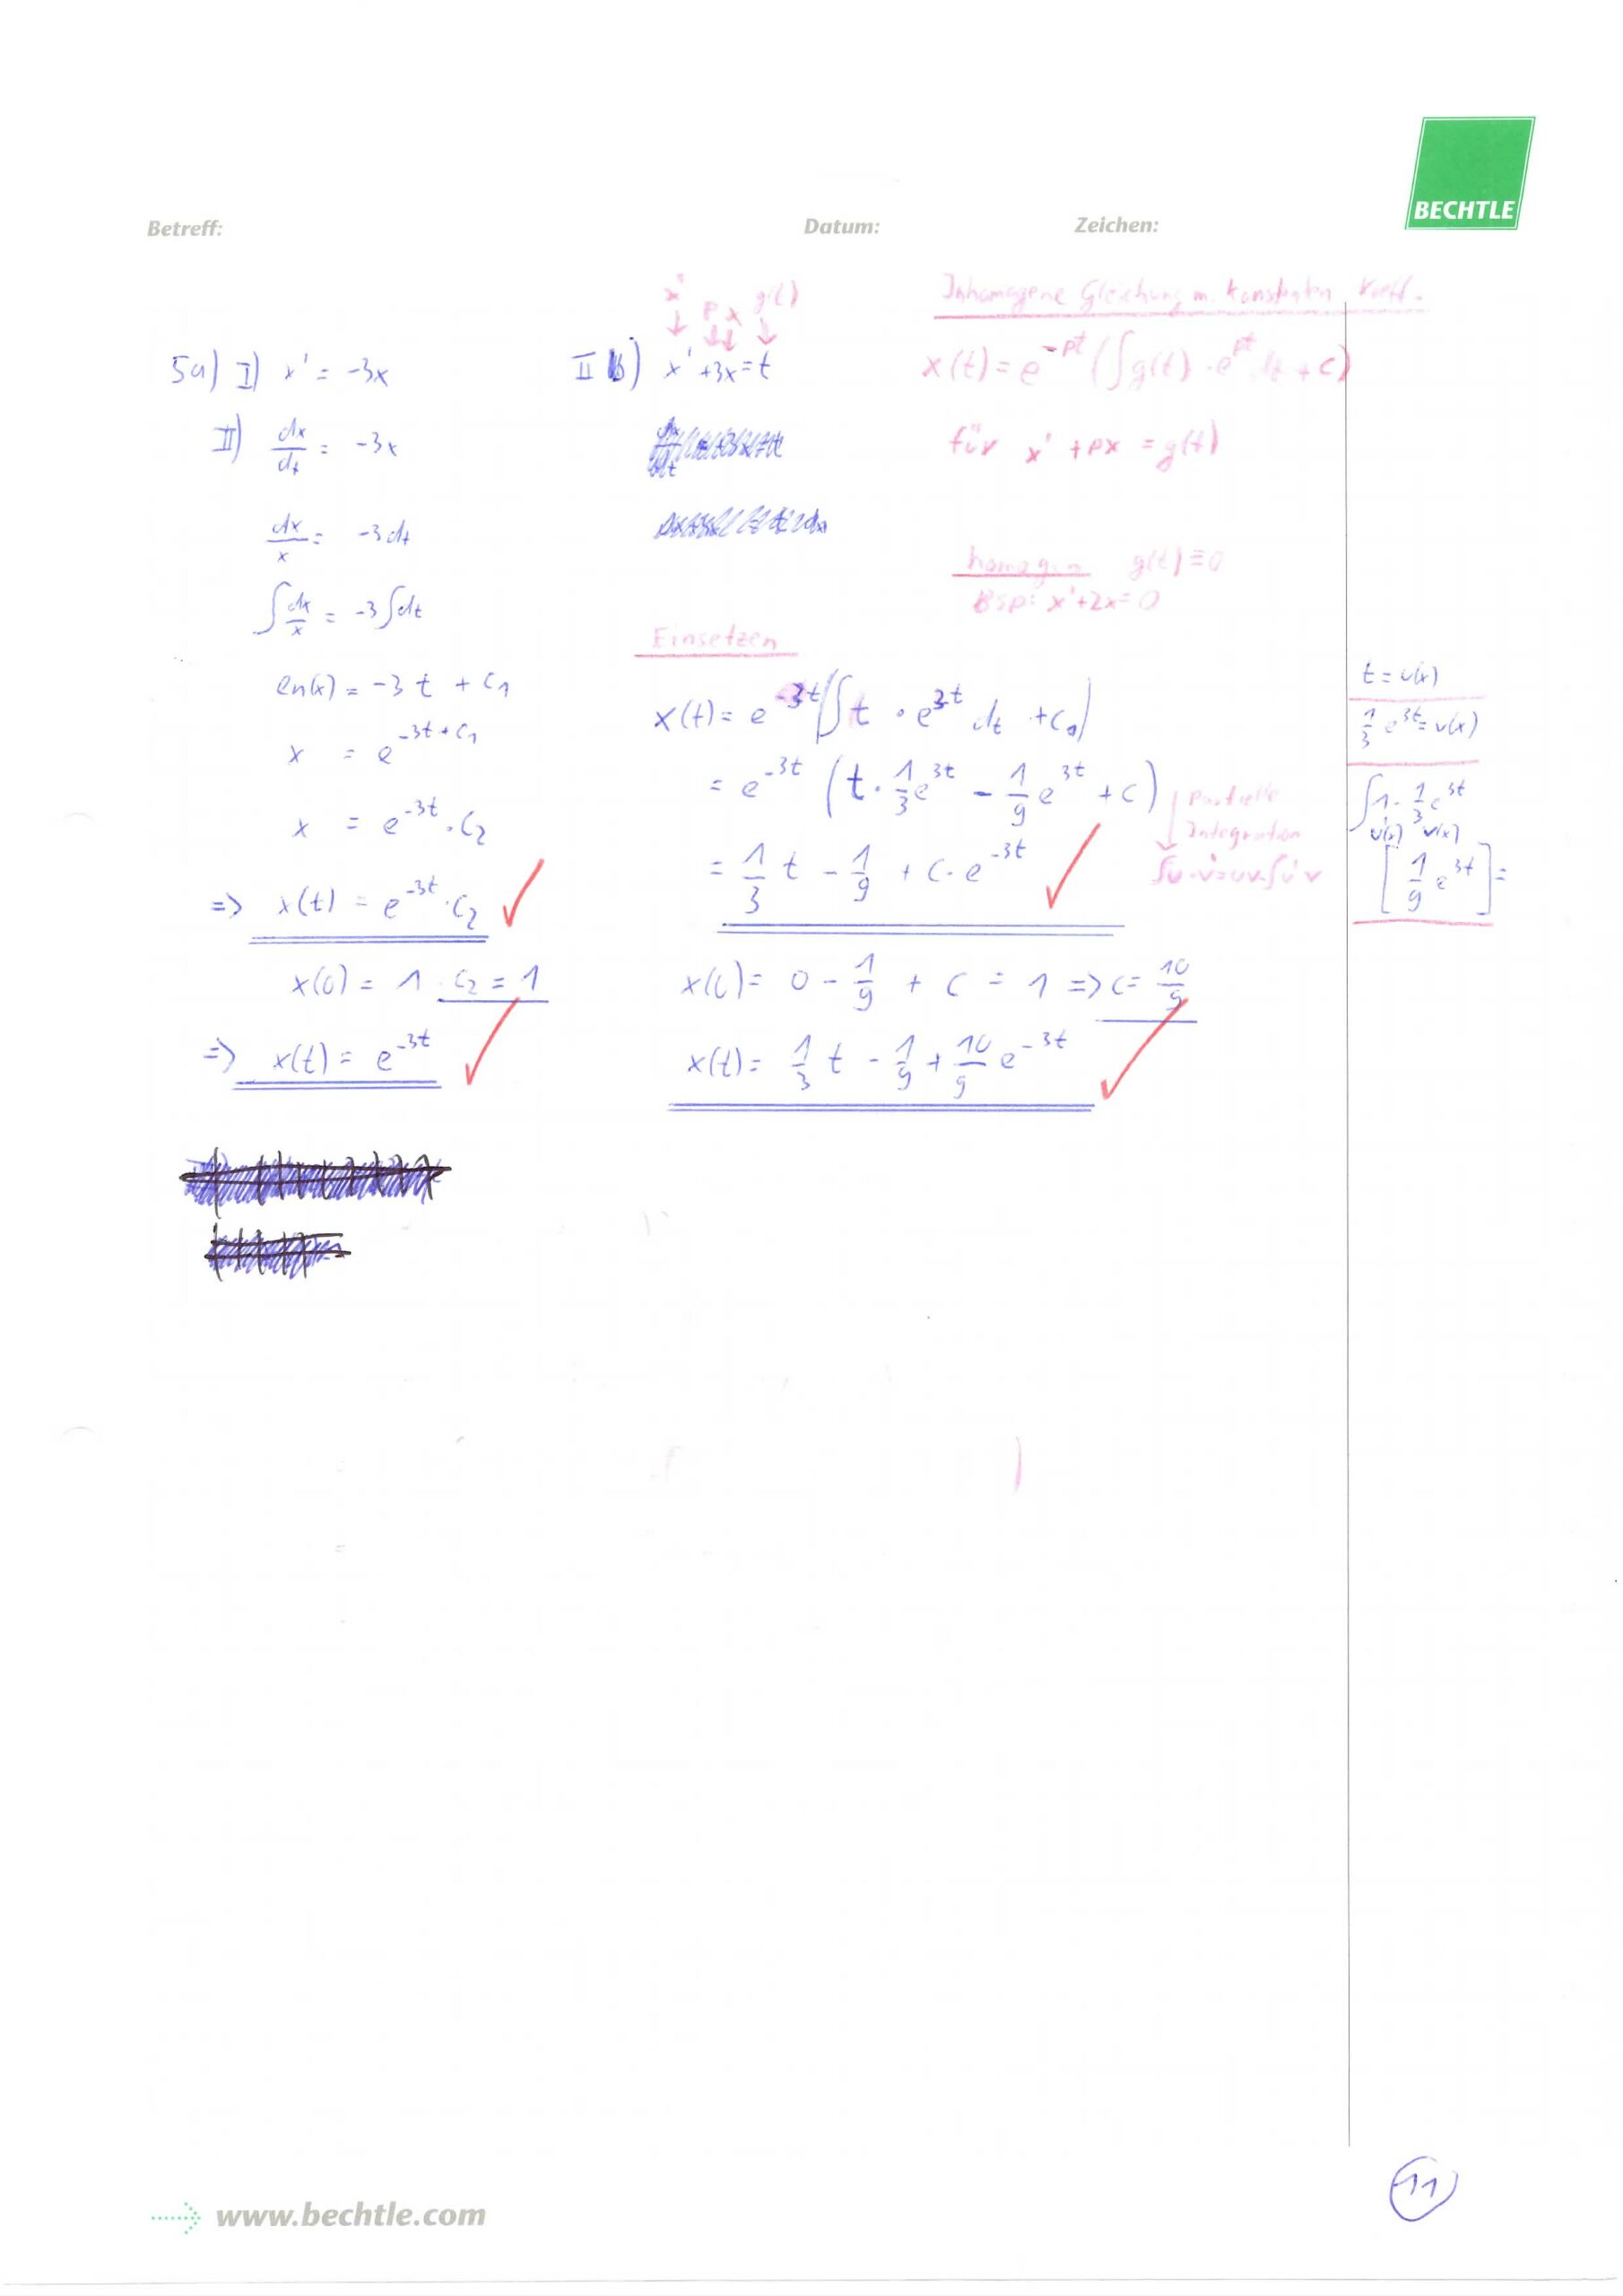 BECHTLE
Betreff:
Datum:
Zeichen:
5a) I) x' = -3x
II) dx/dt = -3x
dx/x = -3dt
∫ dx/x = -3∫dt
ln(x) = -3t + C₁
x = e^(-3t+C₁)
x = e^(-3t) · C₂
=> x(t) = e^(-3t) · C₂ ✓
x(0) = 1 · C₂ = 1
=> x(t) = e^(-3t) ✓
x' p x g(t)
↓ ↓↓ ↓
II b) x' + 3x = t
Inhomogene Gleichung m. konstanten Koeff.
x(t) = e^(-pt) (∫g(t) · e^(pt) dt + C)
für x' + px = g(t)
homogen g(t) ≡ 0
Bsp: x' + 2x = 0
Einsetzen
x(t) = e^(-3t) (∫t · e^(3t) dt + C₁)
= e^(-3t) (t · 1/3 e^(3t) - 1/9 e^(3t) + C)
↓ Partielle
Integration
∫u·v' = uv - ∫u'v
= 1/3 t - 1/9 + C · e^(-3t) ✓
x(0) = 0 - 1/9 + C = 1 => C = 10/9
x(t) = 1/3 t - 1/9 + 10/9 e^(-3t) ✓
t = u(x)
1/3 e^(3t) = v(x)
∫1 · 1/3 e^(3t)
u'(x) v(x)
[1/9 e^(3t)] =
www.bechtle.com
11